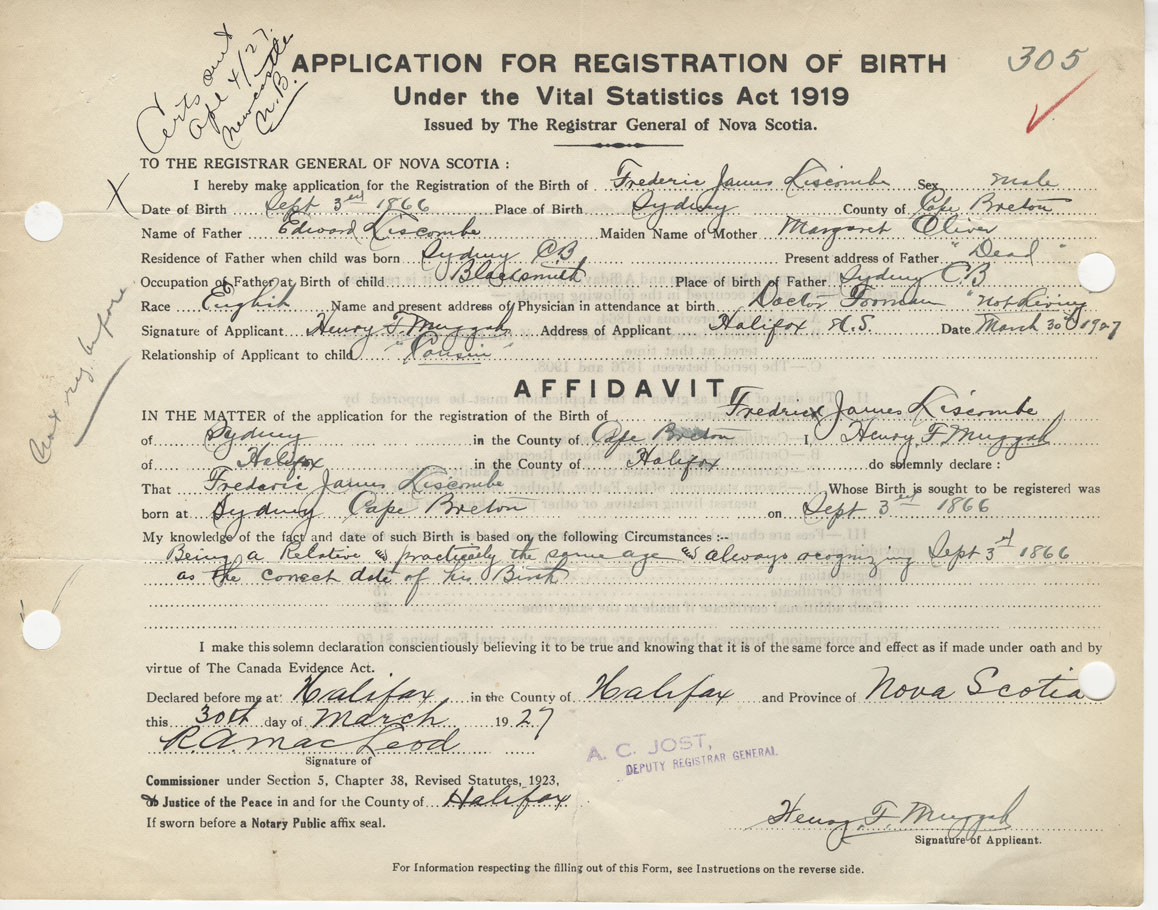 Certs out
Apl 4/27.
Newcastle
N.B.
305
APPLICATION FOR REGISTRATION OF BIRTH
Under the Vital Statistics Act 1919
Issued by The Registrar General of Nova Scotia.
TO THE REGISTRAR GENERAL OF NOVA SCOTIA :
I hereby make application for the Registration of the Birth of Frederic James Liscombe Sex male
Date of Birth Sept 3rd 1866 Place of Birth Sydney County of Cape Breton
Name of Father Edward Liscombe Maiden Name of Mother Margaret Oliver
Residence of Father when child was born Sydney C.B Present address of Father "Dead"
Occupation of Father at Birth of child Blacksmith Place of birth of Father Sydney C.B
Race English Name and present address of Physician in attendance at birth Doctor "not living"
Signature of Applicant Henry F. Muggah Address of Applicant Halifax N.S. Date March 30th 1927
Relationship of Applicant to child "Cousin"
not reg. before
AFFIDAVIT
IN THE MATTER of the application for the registration of the Birth of Frederick James Liscombe
of Sydney in the County of Cape Breton I, Henry F. Muggah
of Halifax in the County of Halifax do solemnly declare :
That Frederic James Liscombe Whose Birth is sought to be registered was
born at Sydney Cape Breton on Sept 3rd 1866
My knowledge of the fact and date of such Birth is based on the following Circumstances :--
Being a Relative & practicely the same age & always recognizing Sept 3rd 1866
as the correct date of his Birth
I make this solemn declaration conscientiously believing it to be true and knowing that it is of the same force and effect as if made under oath and by
virtue of The Canada Evidence Act.
Declared before me at Halifax in the County of Halifax and Province of Nova Scotia
this 30th day of March 1927
R. A. MacLeod
Signature of
A. C. JOST,
DEPUTY REGISTRAR GENERAL.
Commissioner under Section 5, Chapter 38, Revised Statutes, 1923,
Justice of the Peace in and for the County of Halifax
If sworn before a Notary Public affix seal.
Henry F. Muggah
Signature of Applicant.
For Information respecting the filling out of this Form, see Instructions on the reverse side.